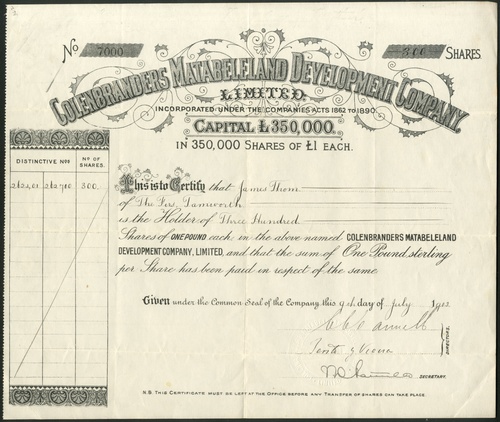 No 7000
300 SHARES
COLENBRANDERS MATABELELAND DEVELOPMENT COMPANY,
LIMITED.
INCORPORATED UNDER THE COMPANIES ACTS 1862 TO 1890.
CAPITAL £350,000.
IN 350,000 SHARES OF £1 EACH.
DISTINCTIVE Nos No OF SHARES.
300
This is to Certify that James Thom
of The Firs, Tamworth
is the Holder of Three Hundred
Shares of ONE POUND each, in the above named COLENBRANDERS MATABELELAND
DEVELOPMENT COMPANY, LIMITED, and that the sum of One Pound sterling
per Share has been paid in respect of the same.
Given under the Common Seal of the Company this 9th day of July 1902
DIRECTORS.
SECRETARY.
N.B. THIS CERTIFICATE MUST BE LEFT AT THE OFFICE BEFORE ANY TRANSFER OF SHARES CAN TAKE PLACE.